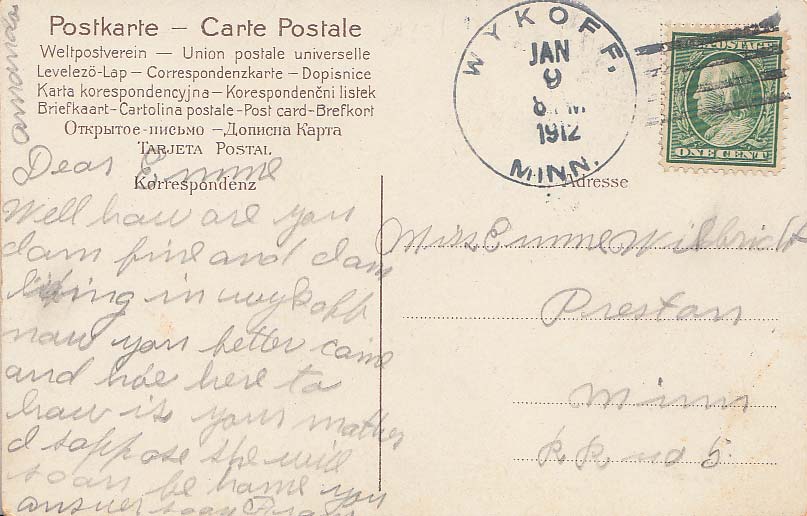 Postkarte – Carte Postale
Weltpostverein – Union postale universelle
Levelező-Lap – Correspondenzkarte – Dopisnice
Karta korespondencyjna – Korespondenční listek
Briefkaart – Cartolina postale – Post card – Brefkort
Открытое письмо – Дописна Карта
TARJETA POSTAL
Korrespondenz
Adresse
WYKOFF.
JAN
9
8 PM
1912
MINN.
POSTAGE
ONE CENT
Dear Emme
Well how are you
I am fine and I am
living in wykoff
now you better come
and here to
how is your mother
I soppose she will
soon be home you
answer soon From
amanda
Miss Emme Wilbricht
Preston
Minn
R.R. no 5